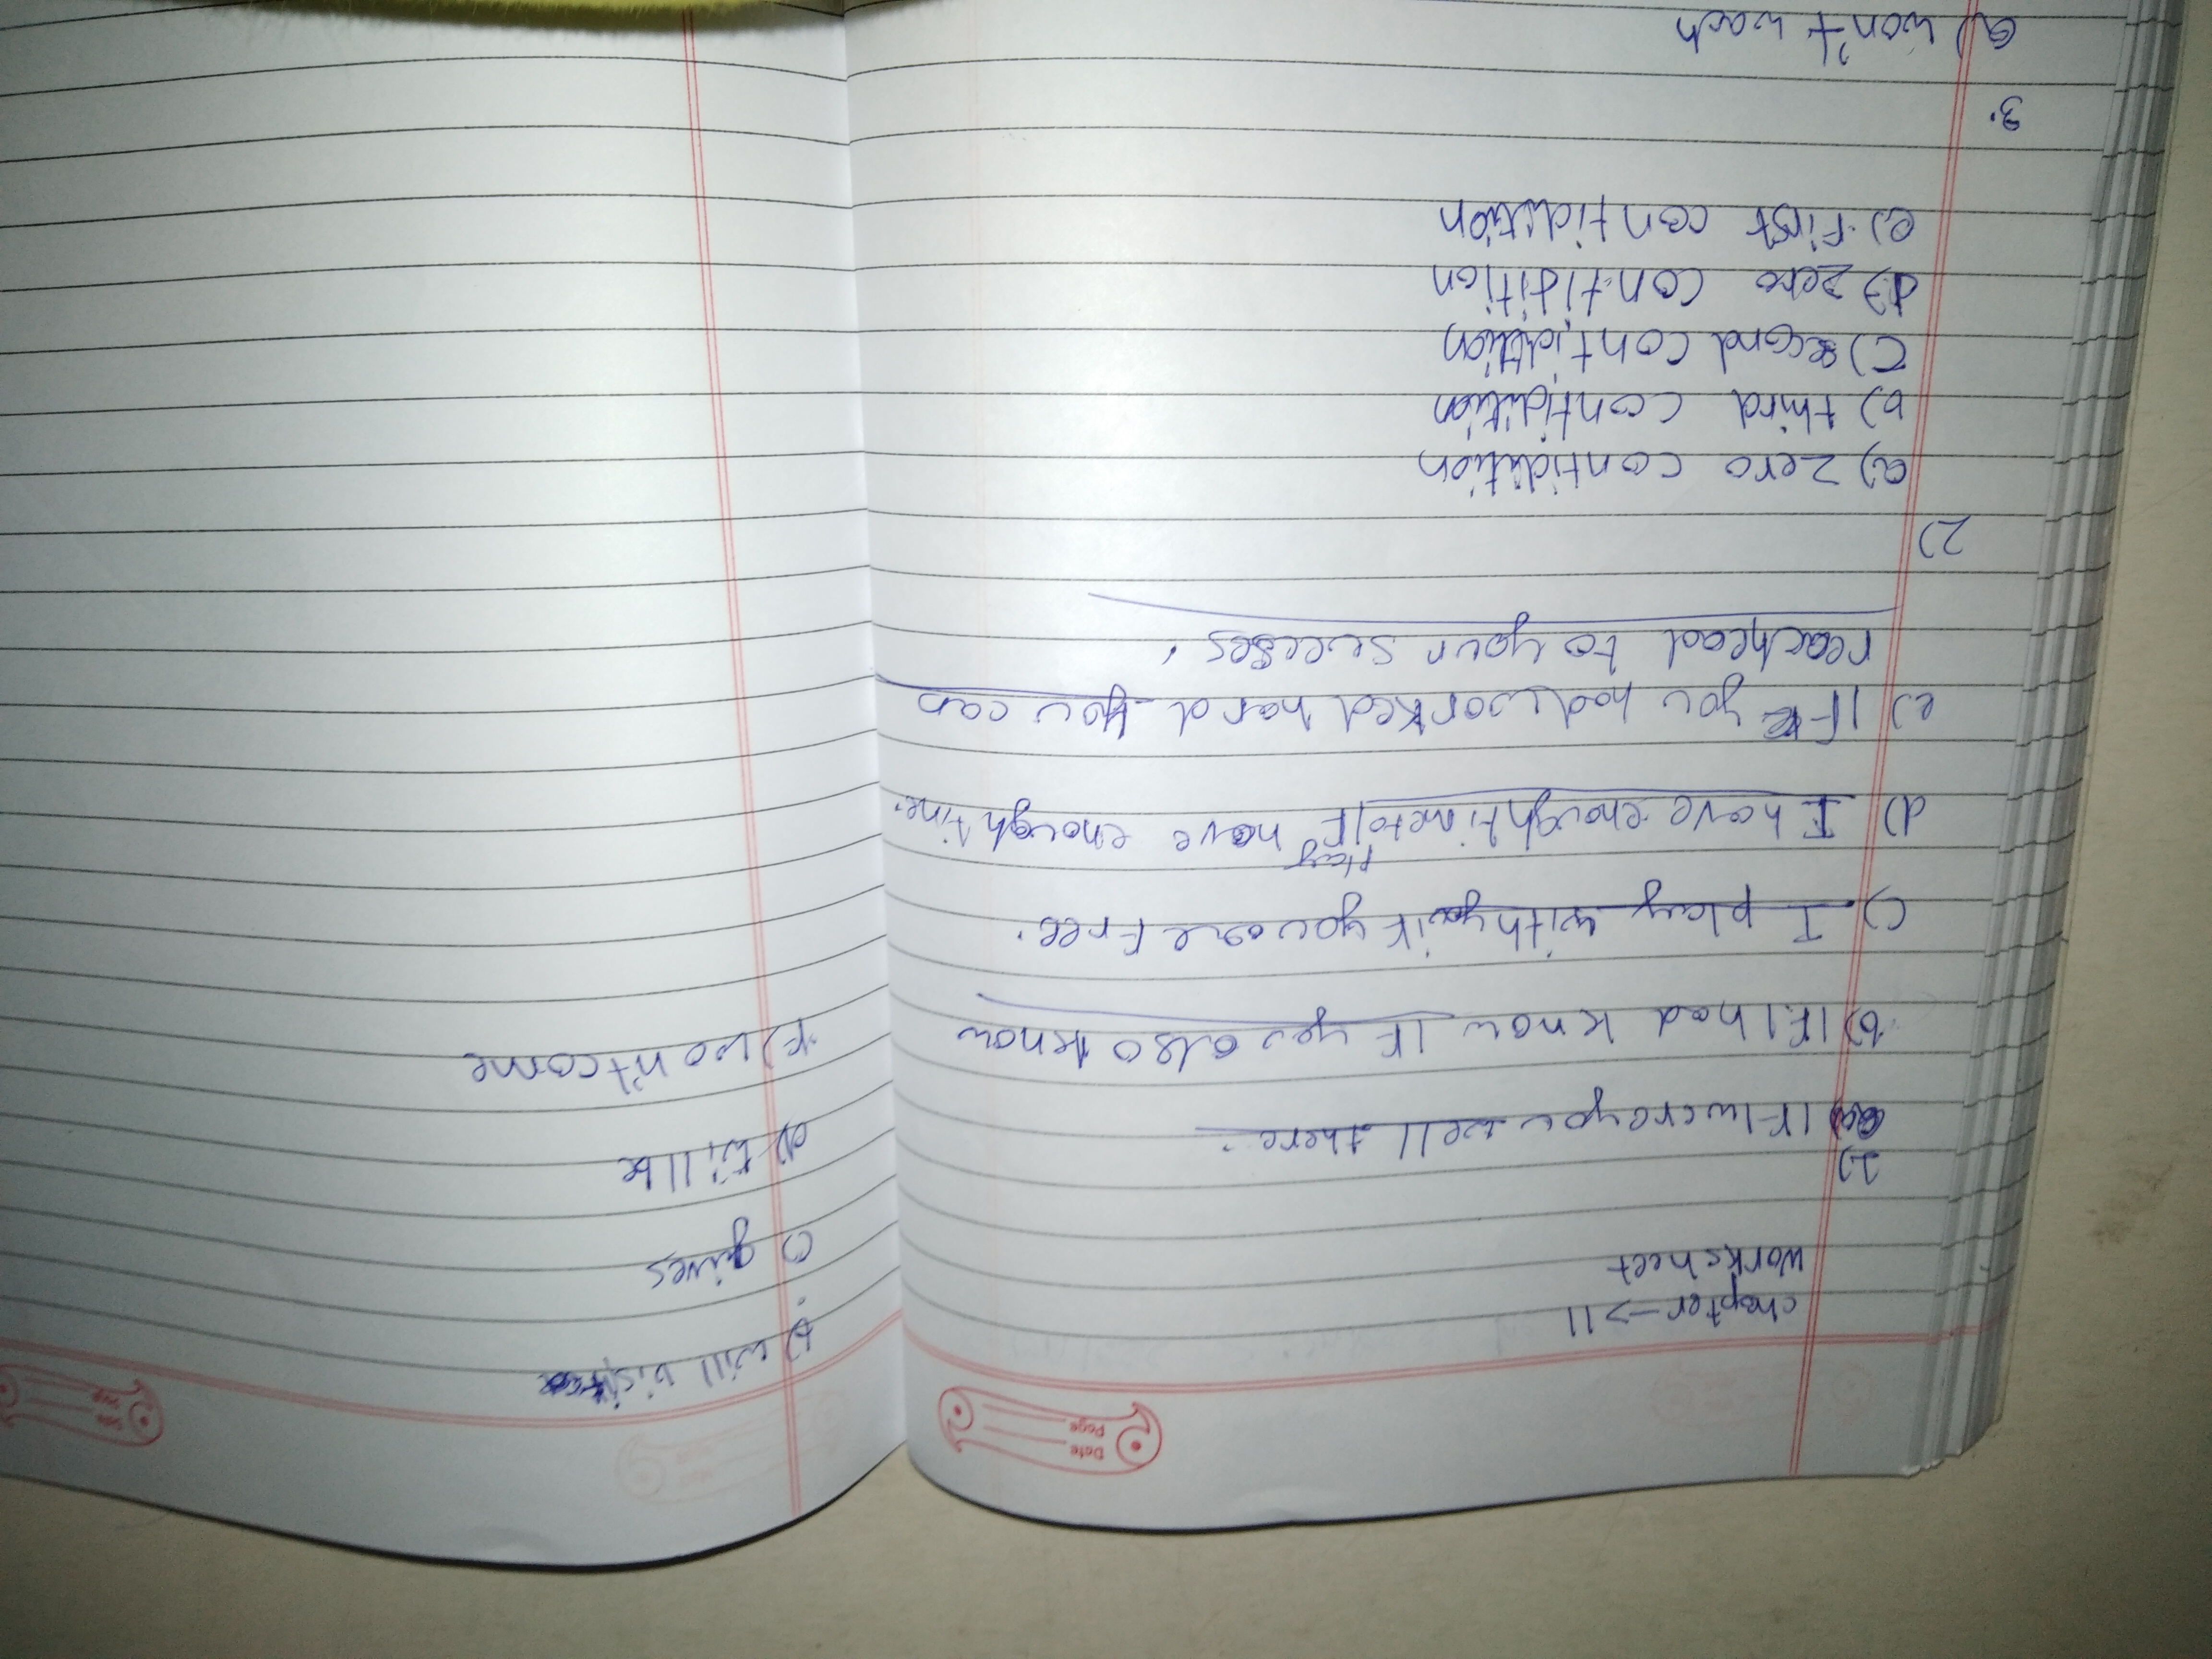 Date
Page
chapter → 11
worksheet
1)
a) IF I were you well there.
b) IF I had know IF you also know
c) I play with you if you are Free.
play
d) I have enough time to IF have enough time.
e) IF you had worked hard you can
reachead to your
2)
a) zero contidition
b) third contidition
c) second contidition
d) zero contidition
e) First contidition
3.
a) won't wach
b) will visit
c) gives
d) will be
F) won't come